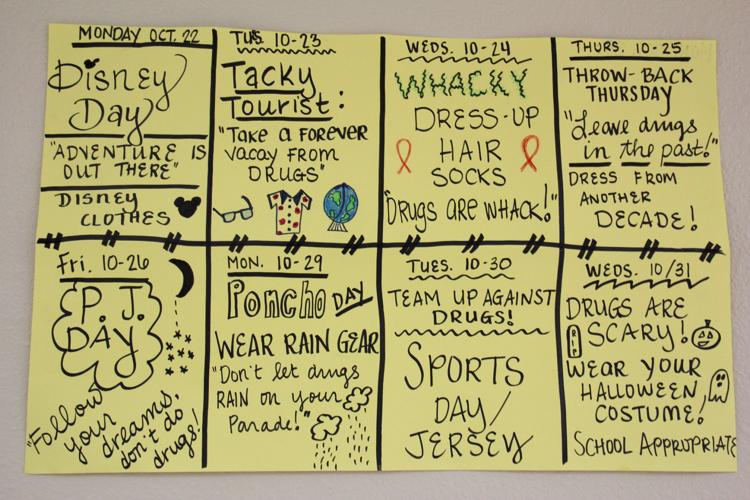 MONDAY OCT. 22
Disney
Day
"ADVENTURE IS
OUT THERE"
DISNEY
CLOTHES
TUES. 10-23
Tacky
Tourist:
"TAKE A FOREVER
VACAY FROM
DRUGS"
WEDS. 10-24
WHACKY
DRESS-UP
HAIR
SOCKS
"DRUGS ARE WHACK!"
THURS. 10-25
THROW-BACK
THURSDAY
"Leave drugs
in the past!"
DRESS FROM
ANOTHER
DECADE!
Fri. 10-26
P.J.
DAY
"Follow
your
dreams,
don't do
drugs!
MON. 10-29
Poncho DAY
WEAR RAIN GEAR
"Don't let drugs
RAIN on your
Parade!"
TUES. 10-30
TEAM UP AGAINST
DRUGS!
SPORTS
DAY/
JERSEY
WEDS. 10/31
DRUGS ARE
SCARY!
WEAR YOUR
HALLOWEEN
COSTUME!
SCHOOL APPROPRIATE